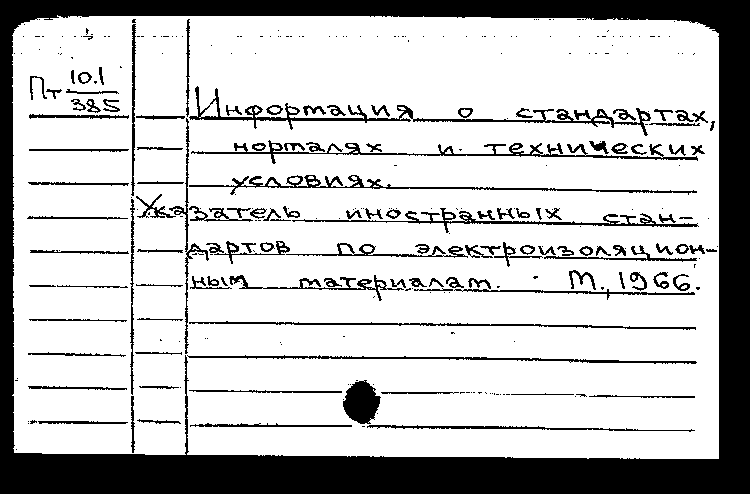 Пт 10.1
385
Информация о стандартах,
нормалях и технических
условиях.
Указатель иностранных стан-
дартов по электроизоляцион-
ным материалам. М., 1966.